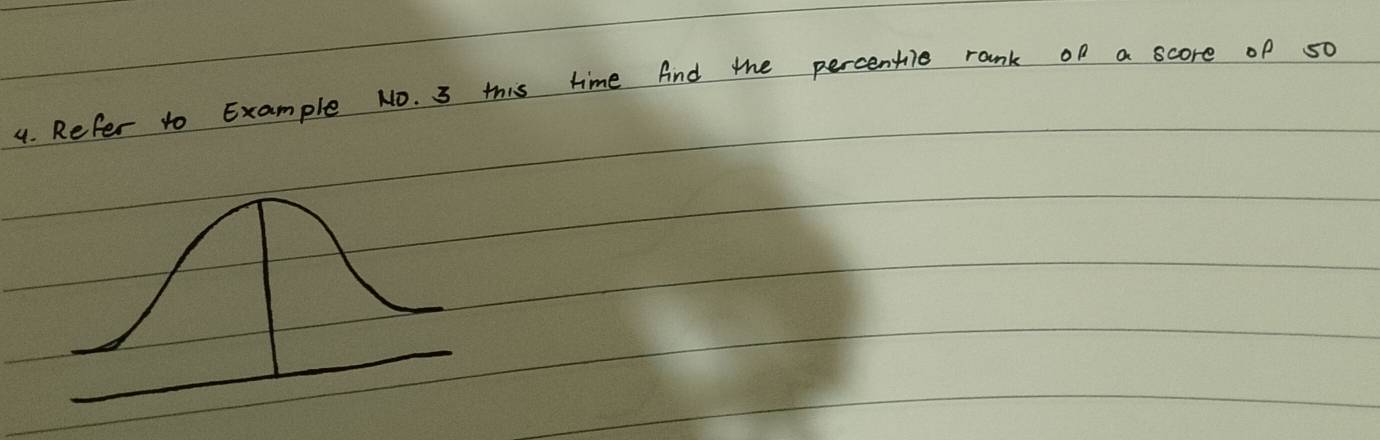 4. Refer to Example No. 3 this time find the percentile rank of a score of 50